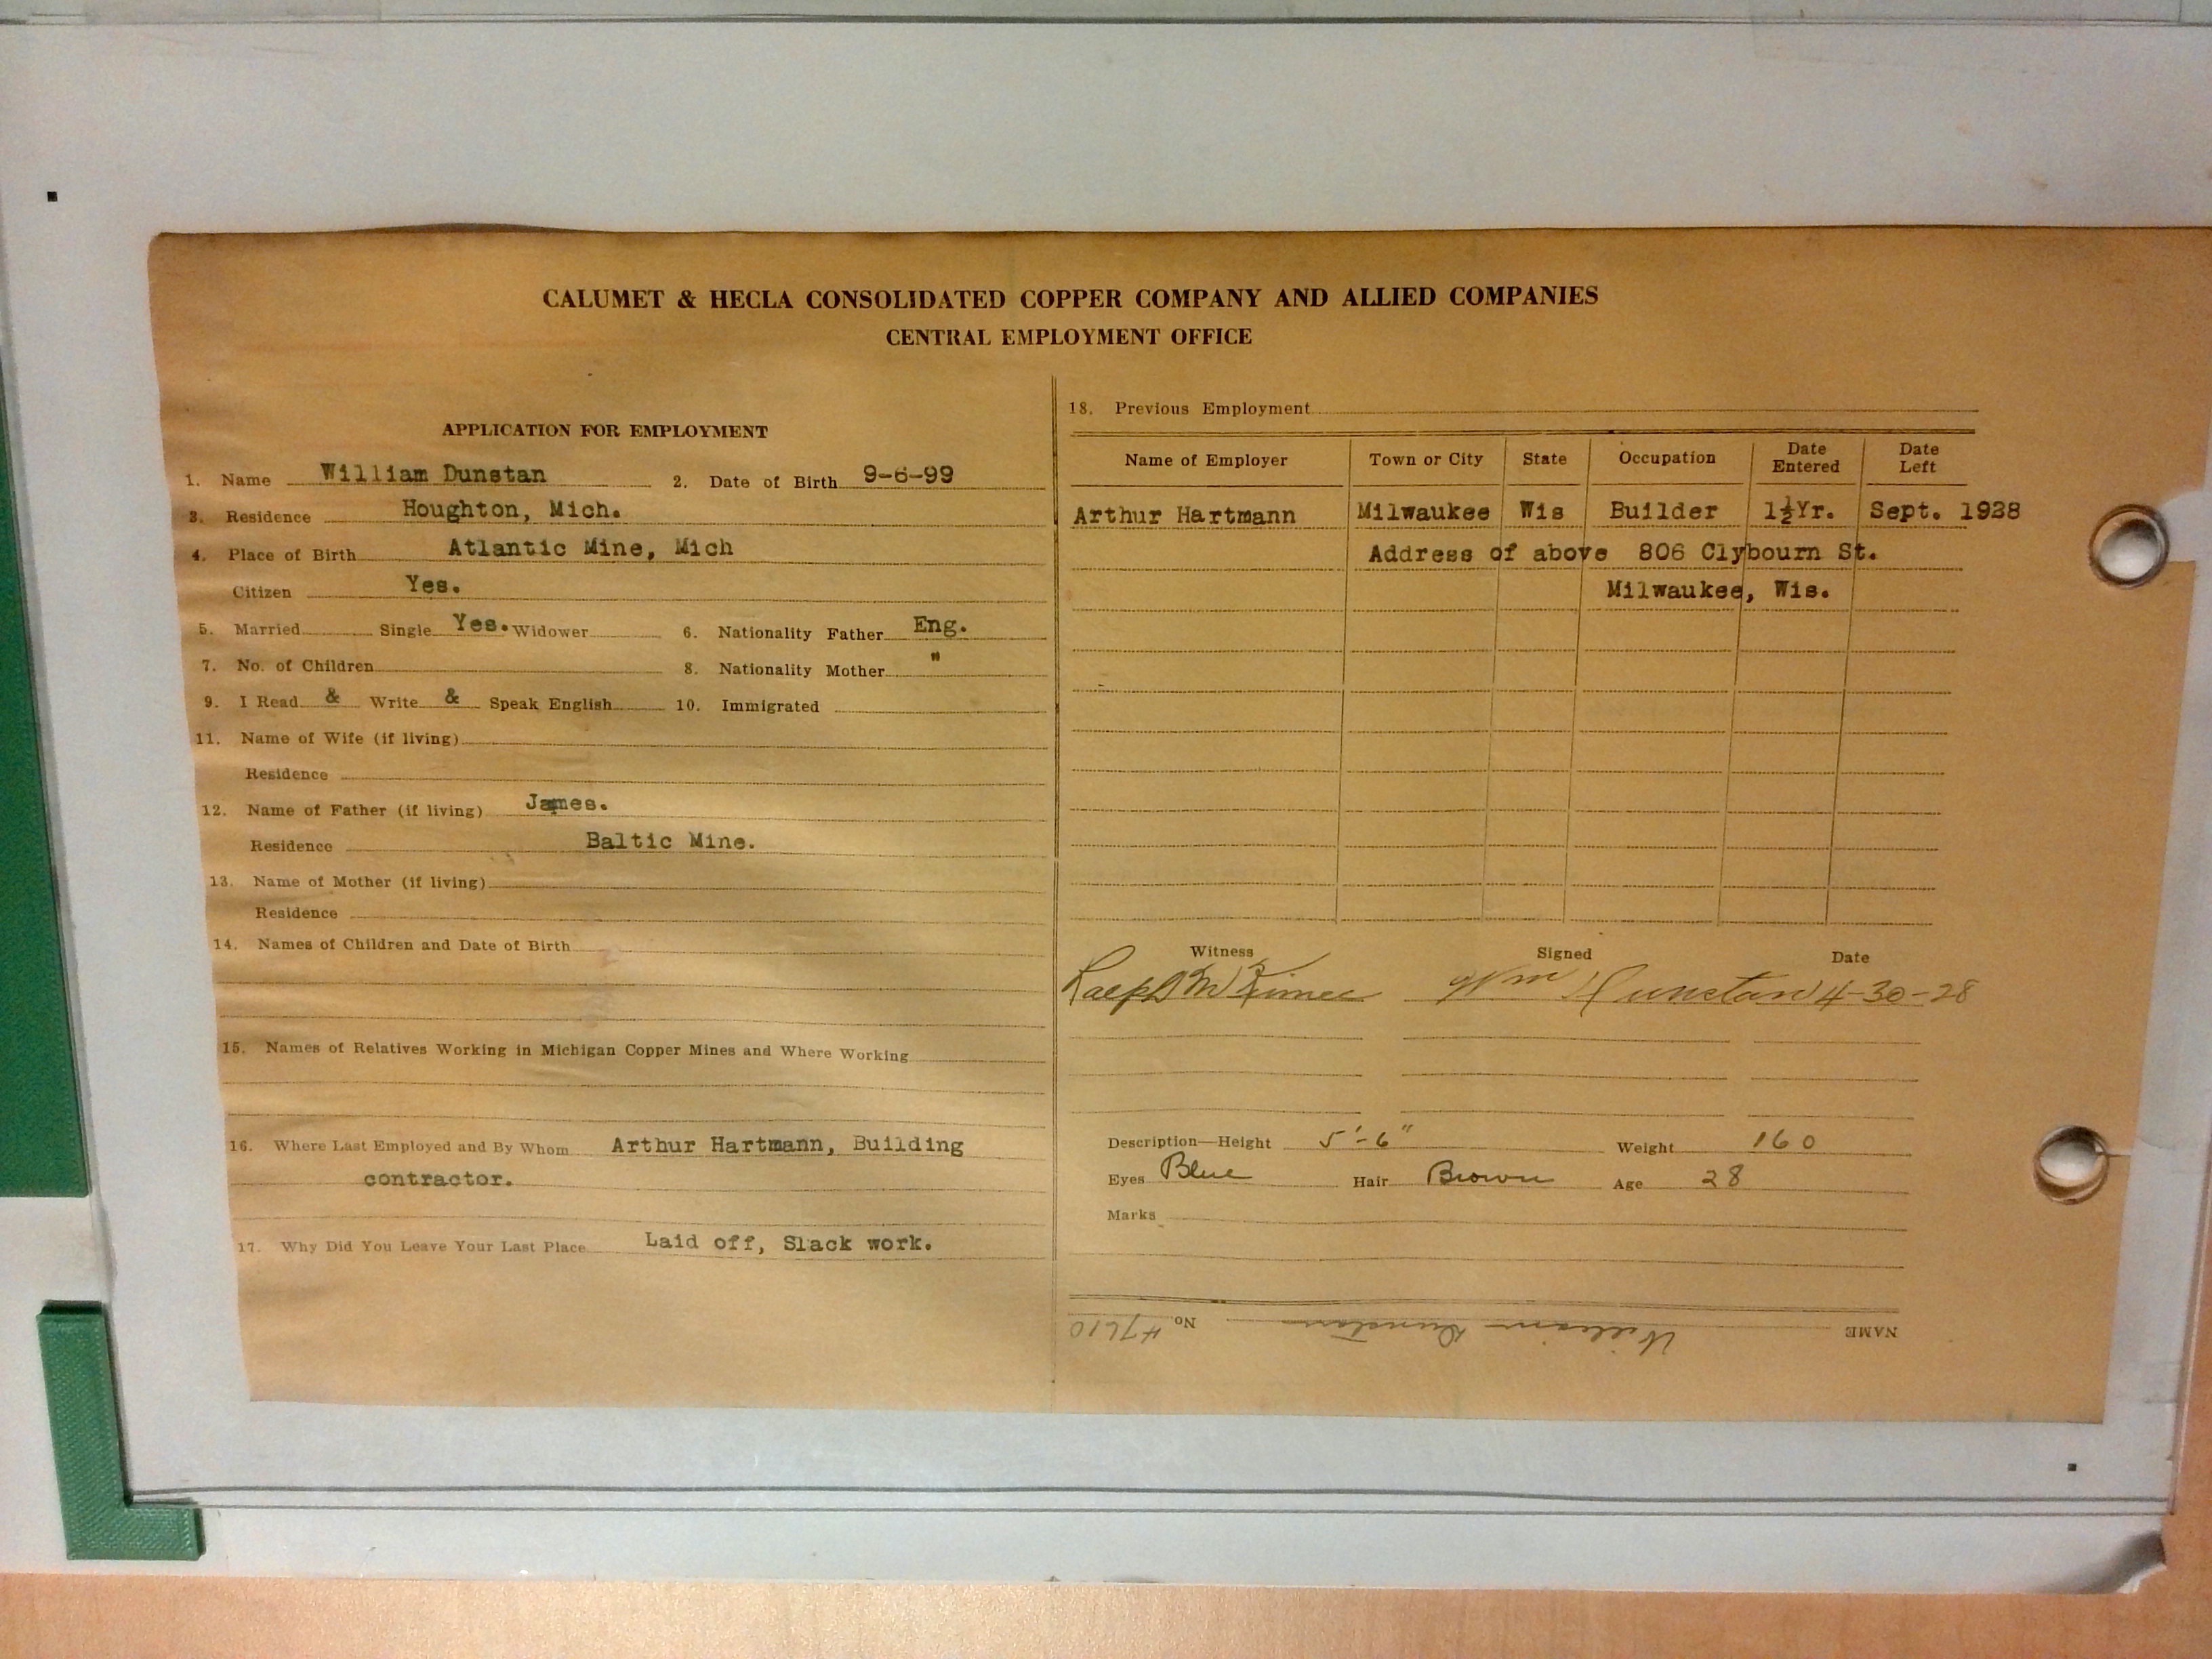 CALUMET & HECLA CONSOLIDATED COPPER COMPANY AND ALLIED COMPANIES
CENTRAL EMPLOYMENT OFFICE
APPLICATION FOR EMPLOYMENT
1. Name William Dunstan 2. Date of Birth 9-6-99
3. Residence Houghton, Mich.
4. Place of Birth Atlantic Mine, Mich
Citizen Yes.
5. Married Single Yes. Widower 6. Nationality Father Eng.
7. No. of Children 8. Nationality Mother "
9. I Read & Write & Speak English 10. Immigrated
11. Name of Wife (if living)
Residence
12. Name of Father (if living) James.
Residence Baltic Mine.
13. Name of Mother (if living)
Residence
14. Names of Children and Date of Birth
15. Names of Relatives Working in Michigan Copper Mines and Where Working
16. Where Last Employed and By Whom Arthur Hartmann, Building
contractor.
17. Why Did You Leave Your Last Place Laid off, Slack work.
18. Previous Employment
Name of Employer Town or City State Occupation Date Entered Date Left
Arthur Hartmann Milwaukee Wis Builder 1½Yr. Sept. 1928
Address of above 806 Clybourn St.
Milwaukee, Wis.
Witness Signed Date
Ralph Wm Dunstan 4-30-28
Description—Height 5'-6" Weight 160
Eyes Blue Hair Brown Age 28
Marks
NAME William Dunstan No. 47610